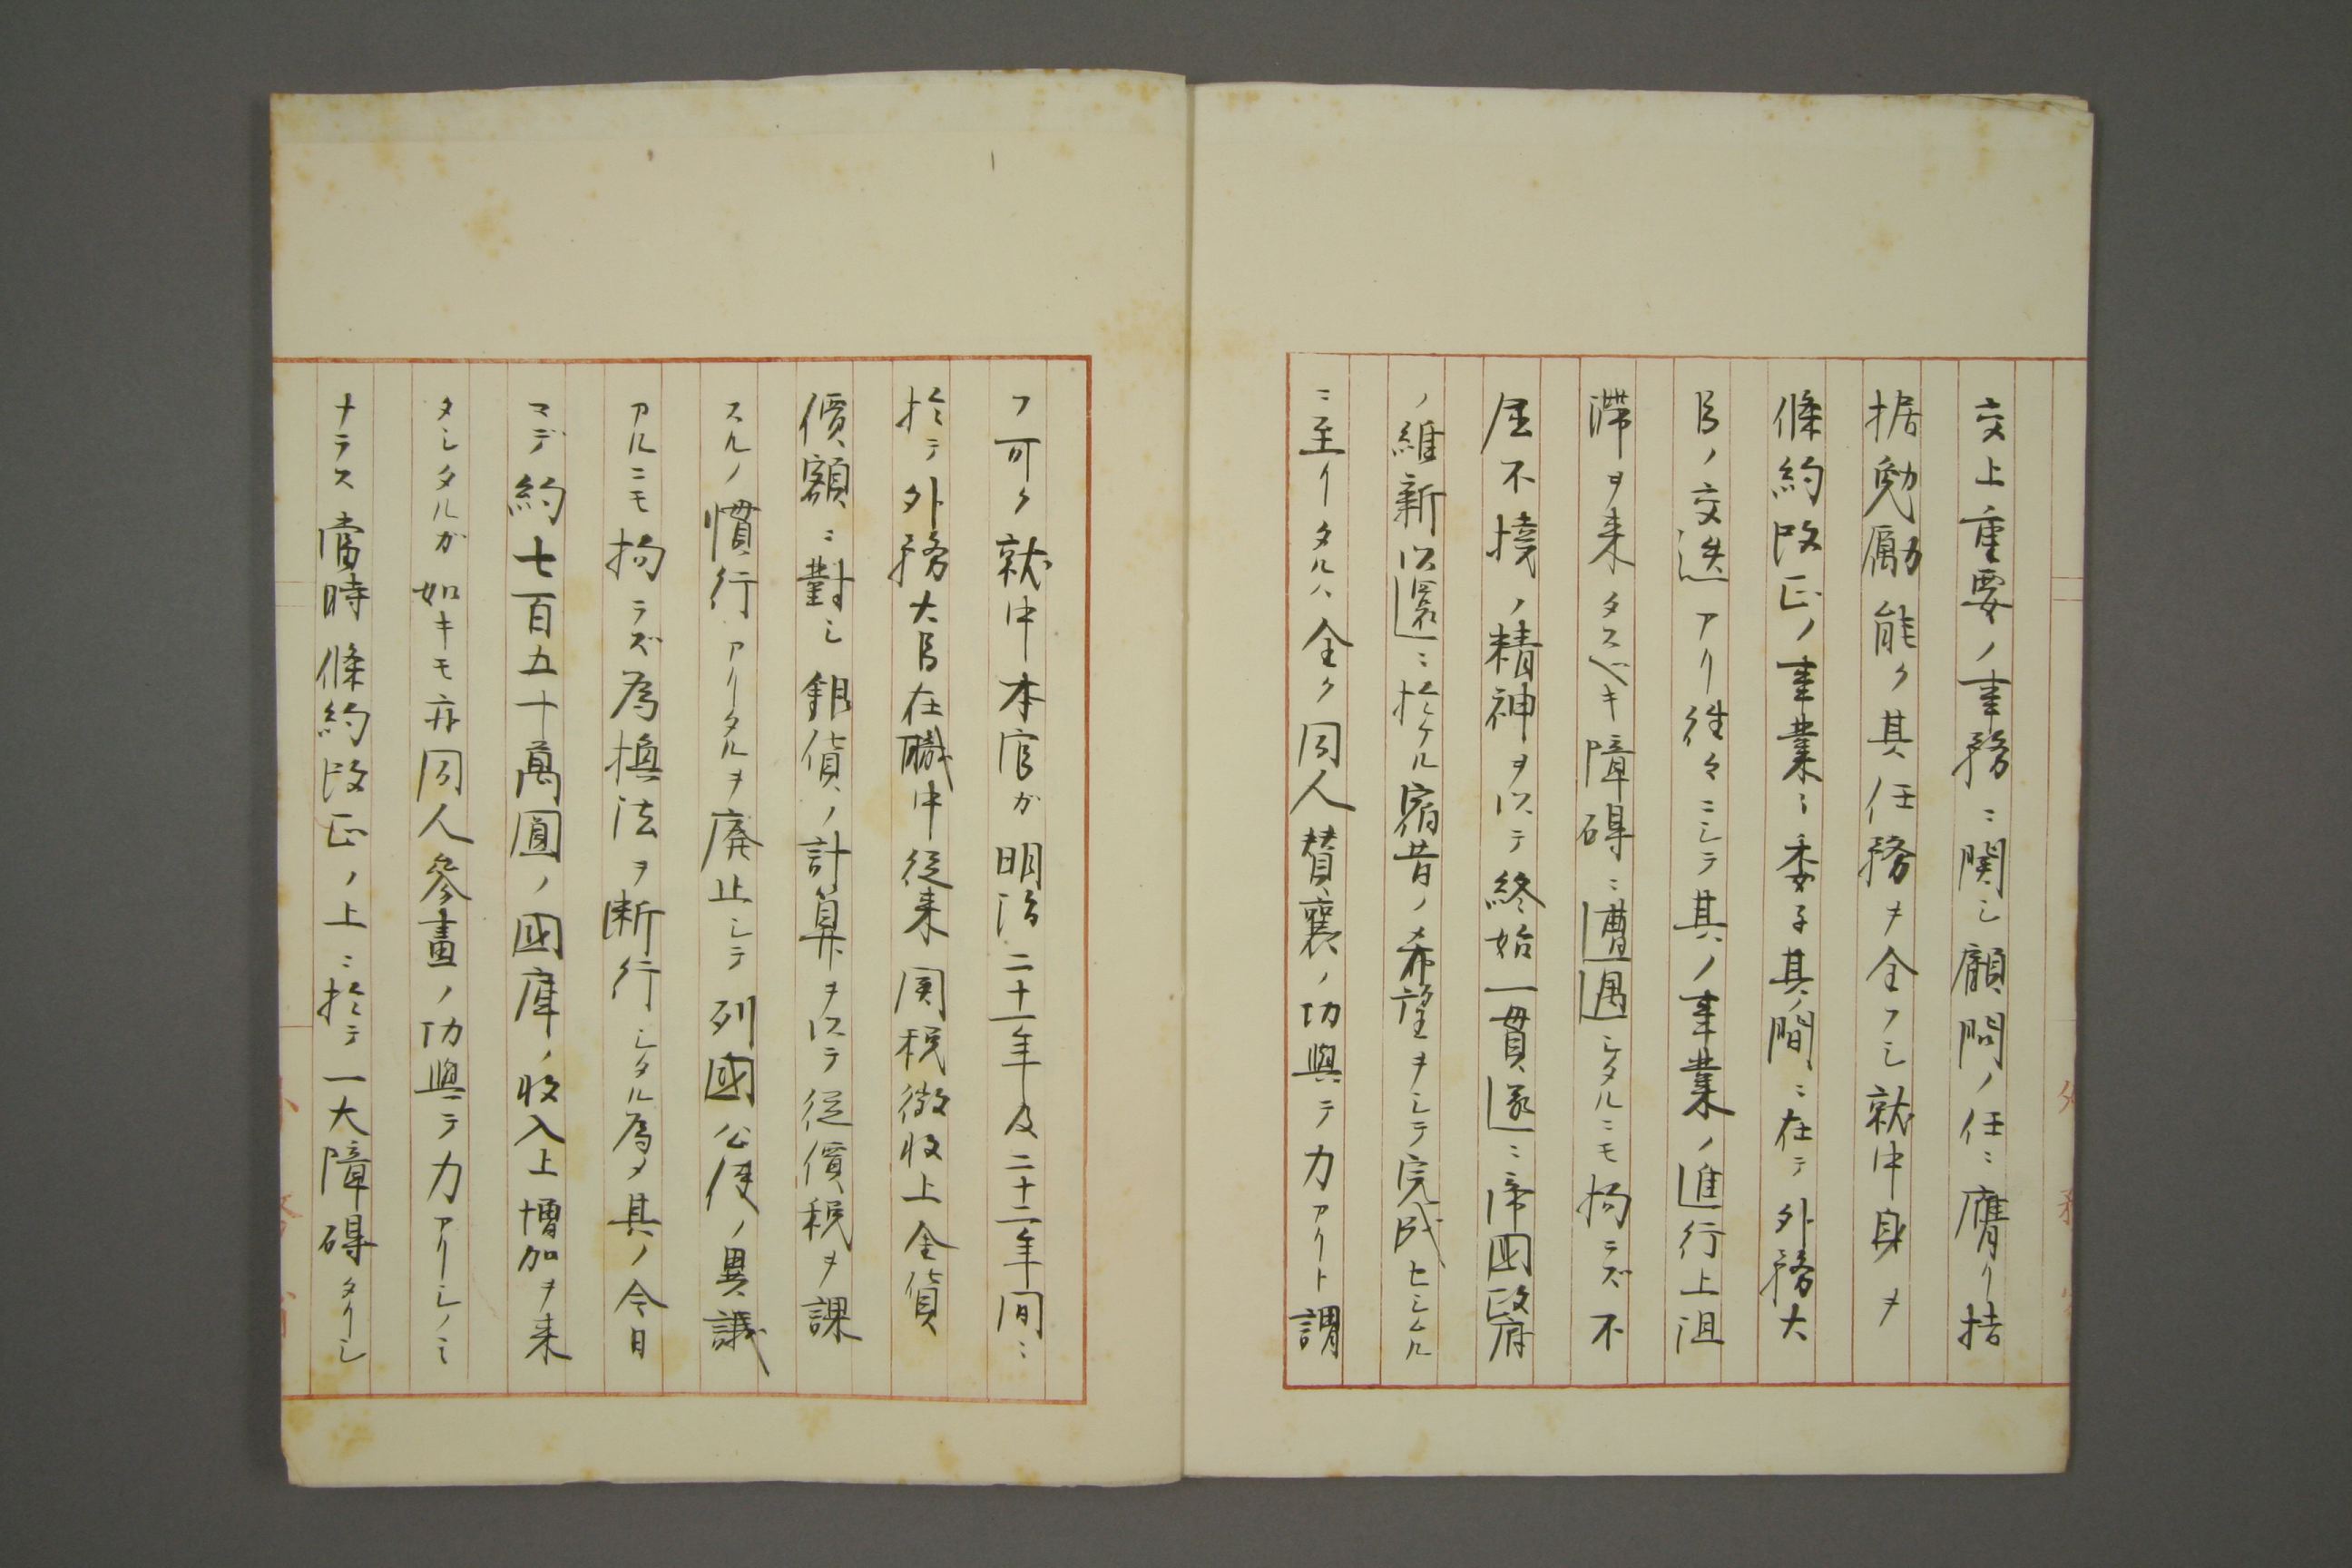 交上重要ノ事務ニ関シ顧問ノ任ニ膺リ拮
据勉励能ク其任務ヲ全フシ就中身ヲ
條約改正ノ事業ニ委子其ノ間ニ在テ外務大
臣ノ交迭アリ往々ニシテ其ノ事業ノ進行上沮
滞ヲ来タスベキ障碍ニ遭遇シタルニモ拘ラズ不
屈不撓ノ精神ヲ以テ終始一貫遂ニ帝国政府
ノ維新以還ニ於ケル宿昔ノ希望ヲシテ完成セシムル
ニ至リタルハ全ク同人賛襄ノ功與テ力アリト謂
フ可ク就中本官カ明治二十一年及二十二年間ニ
於テ外務大臣在職中従来関税徴收上金貨
價額ニ對シ銀貨ノ計算ヲ以テ従價税ヲ課
スルノ慣行アリタルヲ廃止シテ列國公使ノ異議
アルニモ拘ラズ為換法ヲ断行シタル為メ其ノ今日
マデ約七百五十萬圓ノ國庫ノ收入上増加ヲ来
タシタルガ如キモ亦同人參畫ノ功與テ力アリシノミ
ナラス當時條約改正ノ上ニ於テ一大障碍タリシ